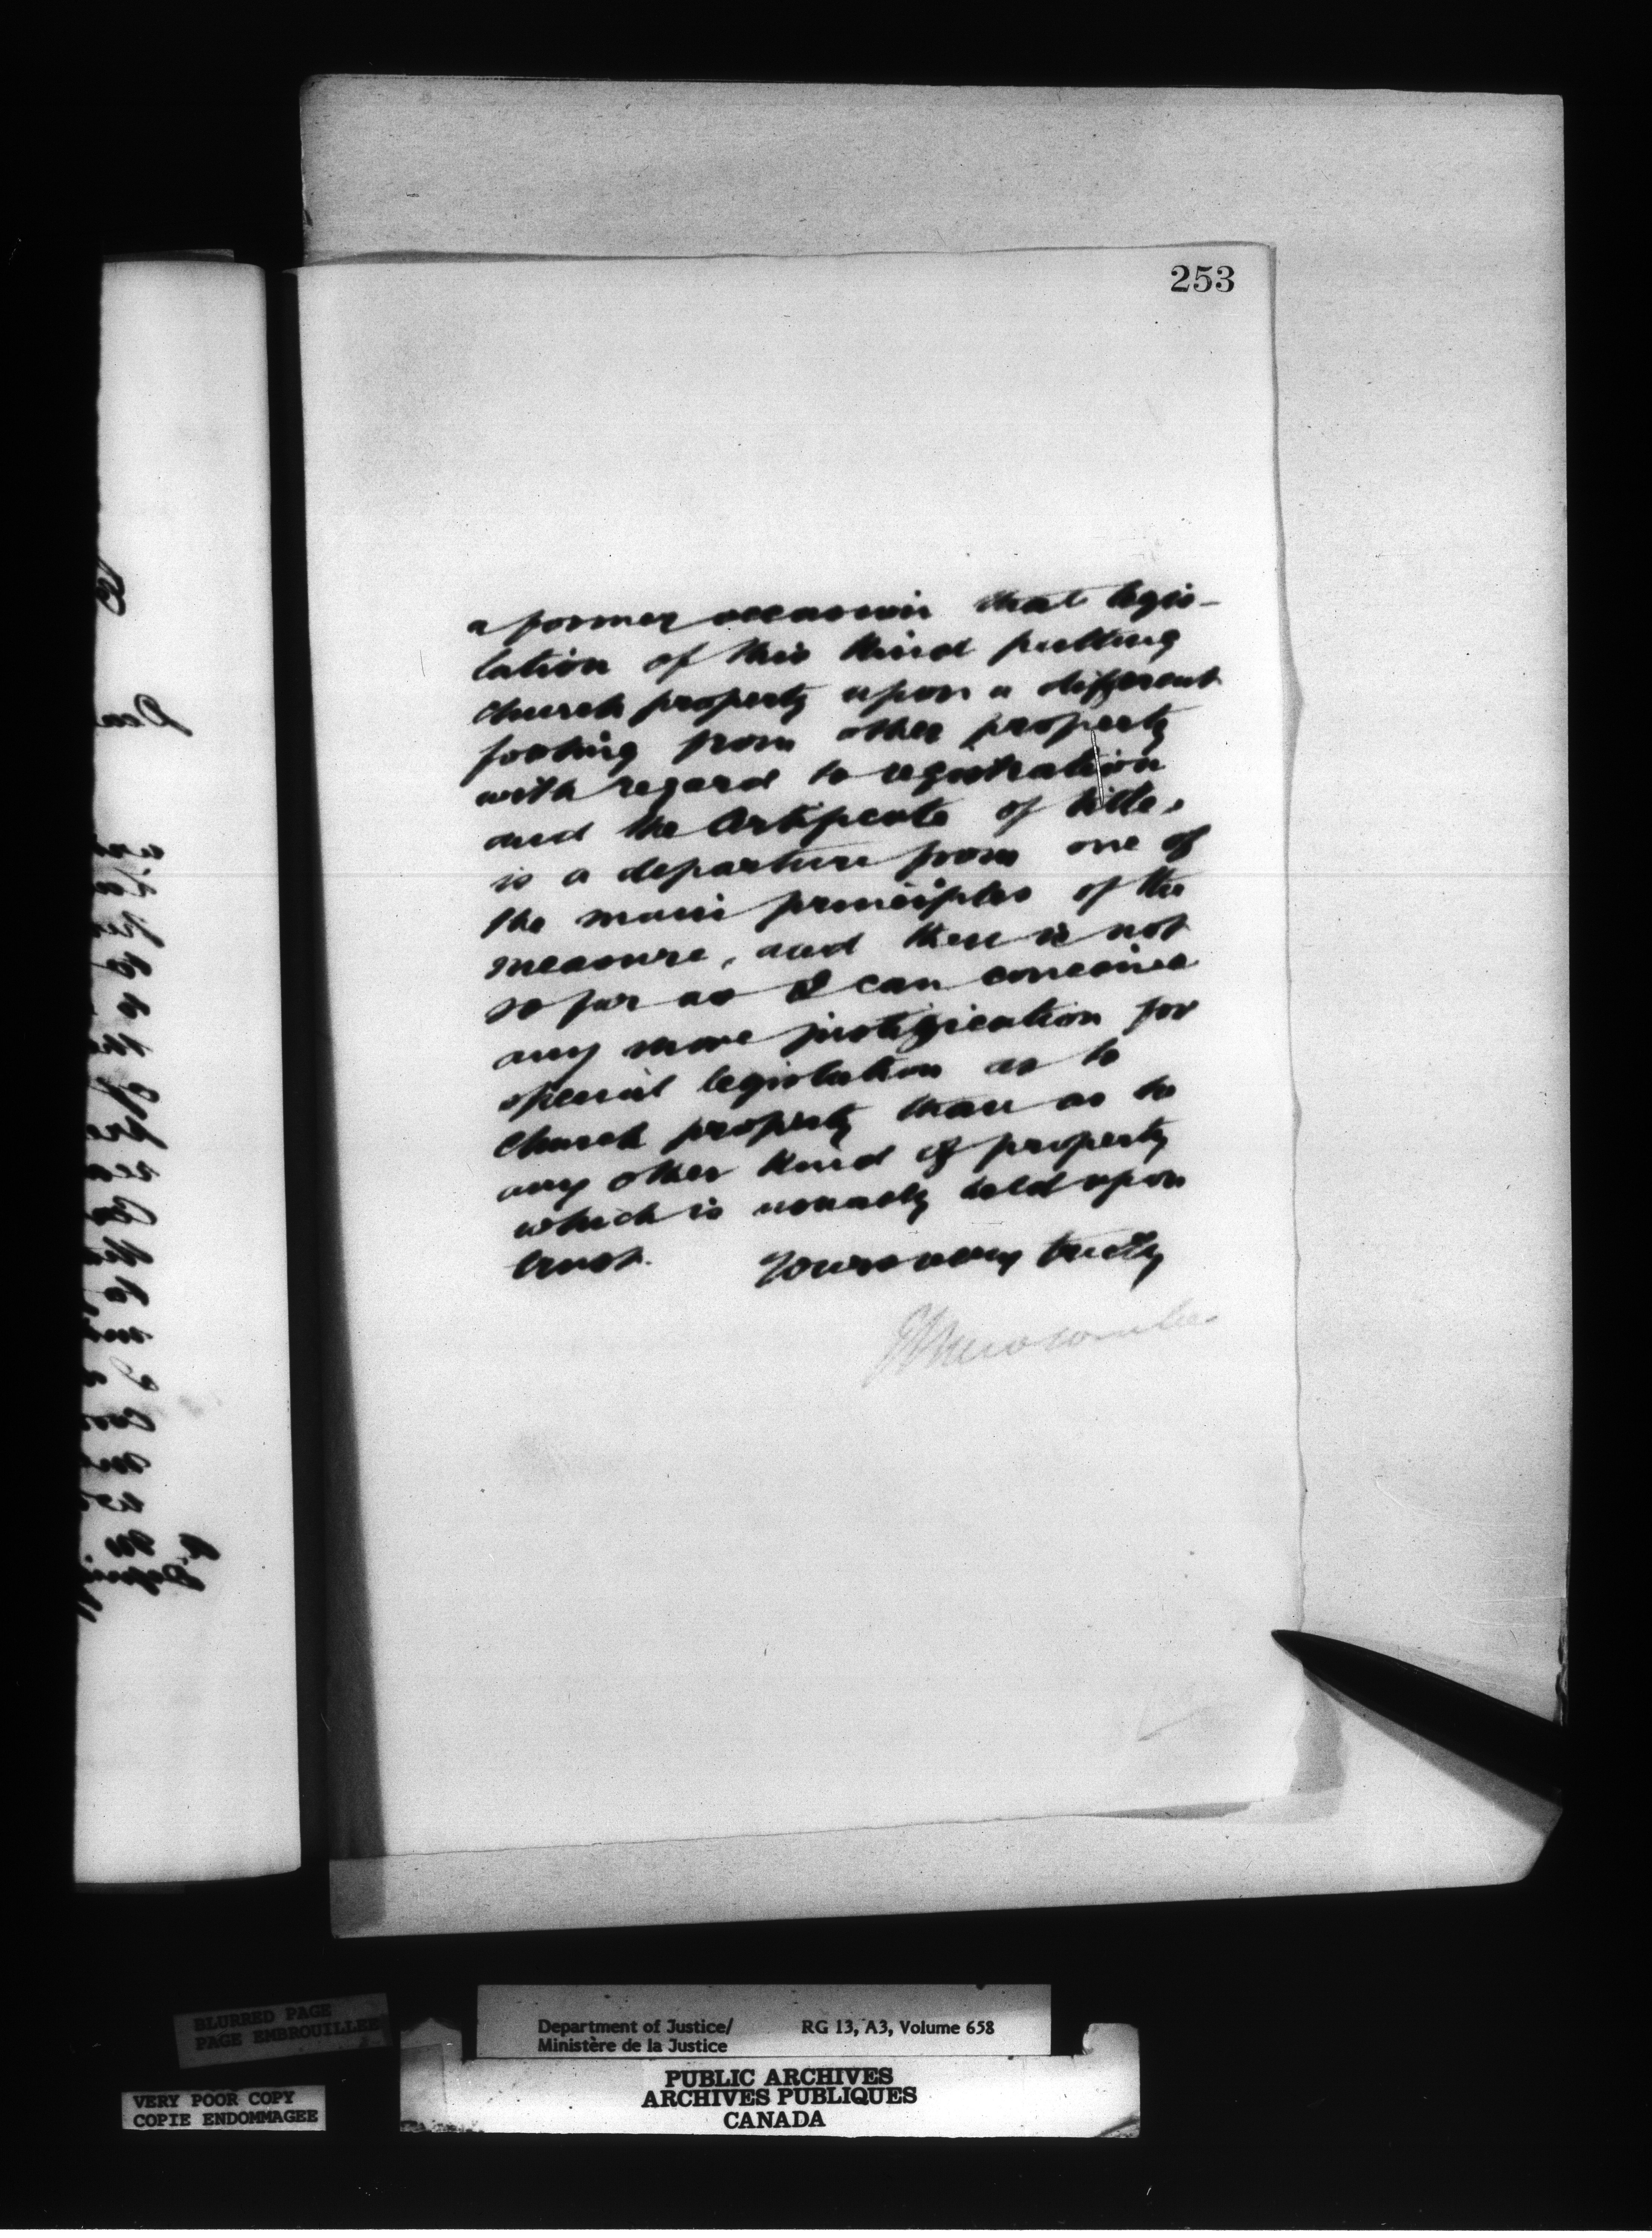 253
a former occasion that legis-
lation of this kind putting
church property upon a different
footing from other property
with regard to registration
and the certificate of title,
is a departure from one of
the main principles of the
measure, and there is not
so far as I can conceive
any more justification for
special legislation as to
church property than as to
any other kind of property
which is usually held upon
trust. Yours very truly
Newcombe
BLURRED PAGE
PAGE EMBROUILLEE
VERY POOR COPY
COPIE ENDOMMAGEE
Department of Justice/ RG 13, A3, Volume 658
Ministère de la Justice
PUBLIC ARCHIVES
ARCHIVES PUBLIQUES
CANADA